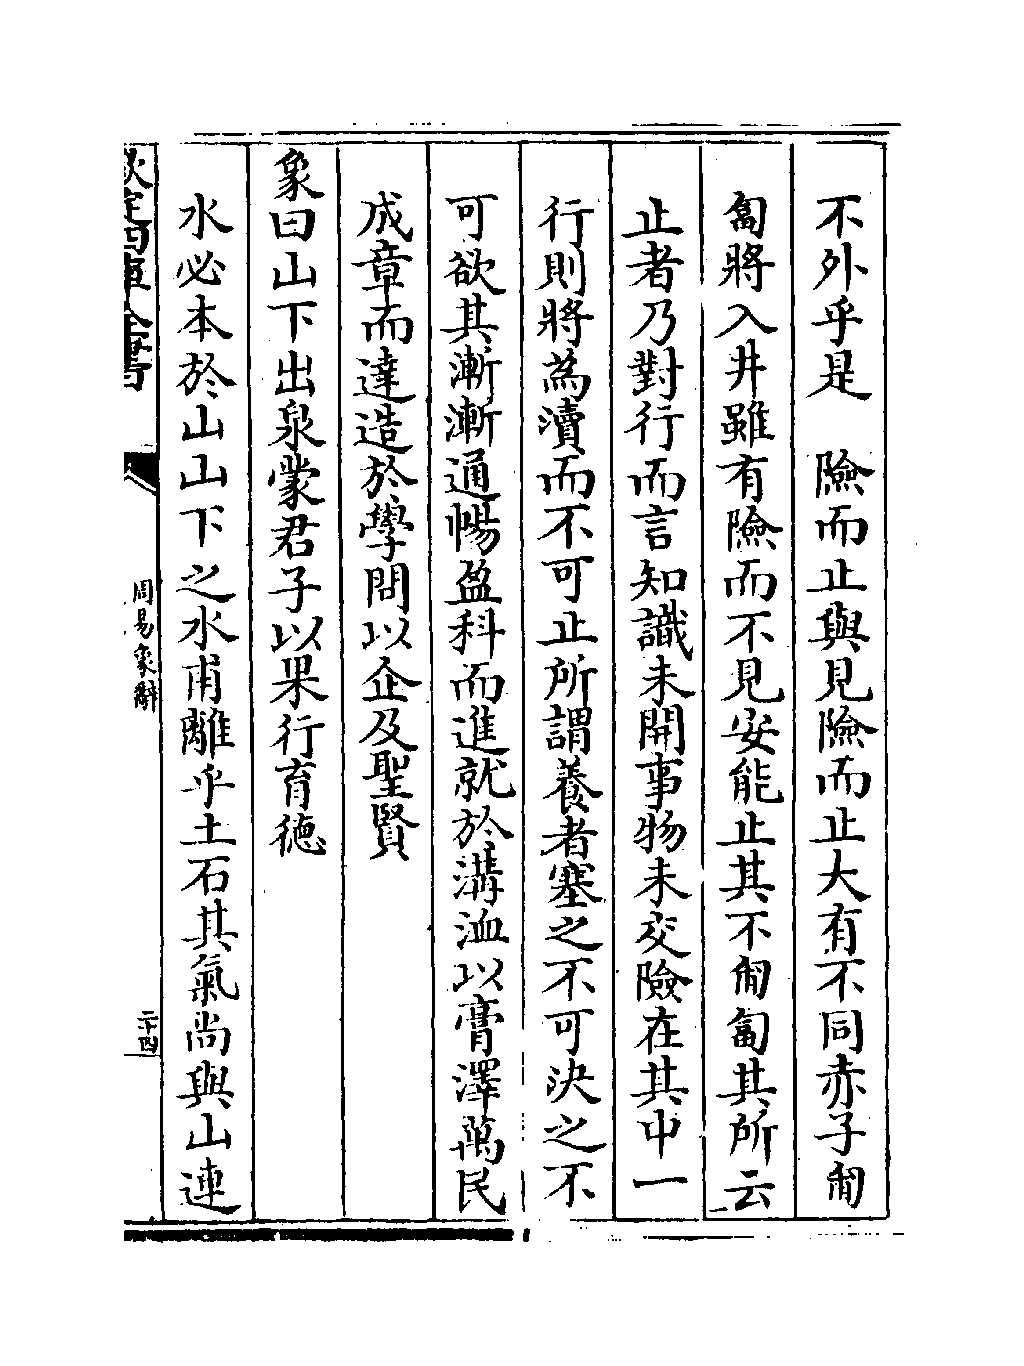 不外乎是　險而止與見險而止大有不同赤子匍
匐將入井雖有險而不見安能止其不匍匐其所云
止者乃對行而言知識未開事物未交險在其中一
行則將為瀆而不可止所謂養者塞之不可決之不
可欲其漸漸通暢盈科而進就於溝洫以膏澤萬民
成章而達造於學問以企及聖賢
象曰山下出泉蒙君子以果行育德
水必本於山山下之水甫離乎土石其氣尚與山連
欽定四庫全書
周易象辭
二十四